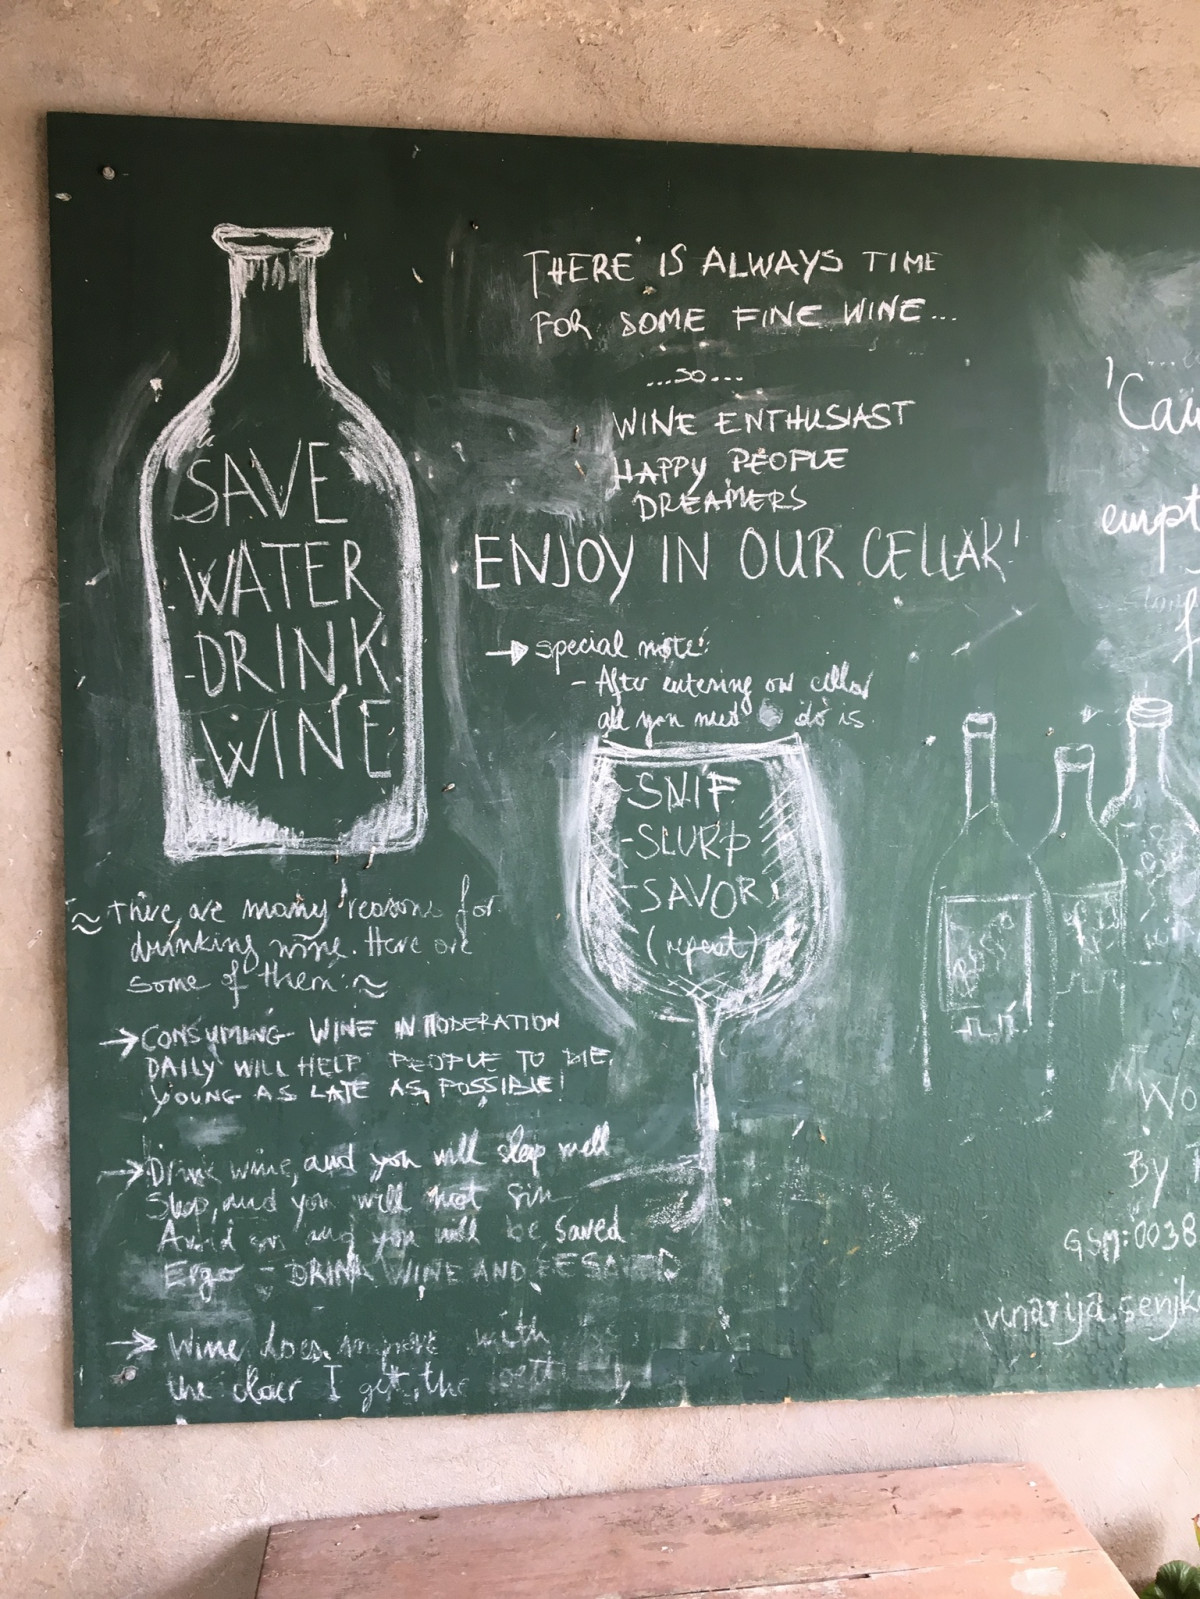 SAVE
WATER
-DRINK
-WINE
THERE IS ALWAYS TIME
FOR SOME FINE WINE...
...SO...
WINE ENTHUSIAST
HAPPY PEOPLE
DREAMERS
ENJOY IN OUR CELLAR!
→ special note:
- After entering our cellar
all you need do is
-SNIF
-SLURP
-SAVOR
(repeat)
≈ There are many reasons for
drinking wine. Here are
some of them: ≈
→ CONSUMING WINE IN MODERATION
DAILY WILL HELP PEOPLE TO DIE
YOUNG AS LATE AS POSSIBLE!
→ Drink wine, and you will sleep well
Sleep, and you will not sin
Avoid sin and you will be saved
Ergo - DRINK WINE AND BE SAVED
→ Wine does improve with
the older I get, the
'Cau
empt
Wo
By
GSM: 0038
vinarija.senjk